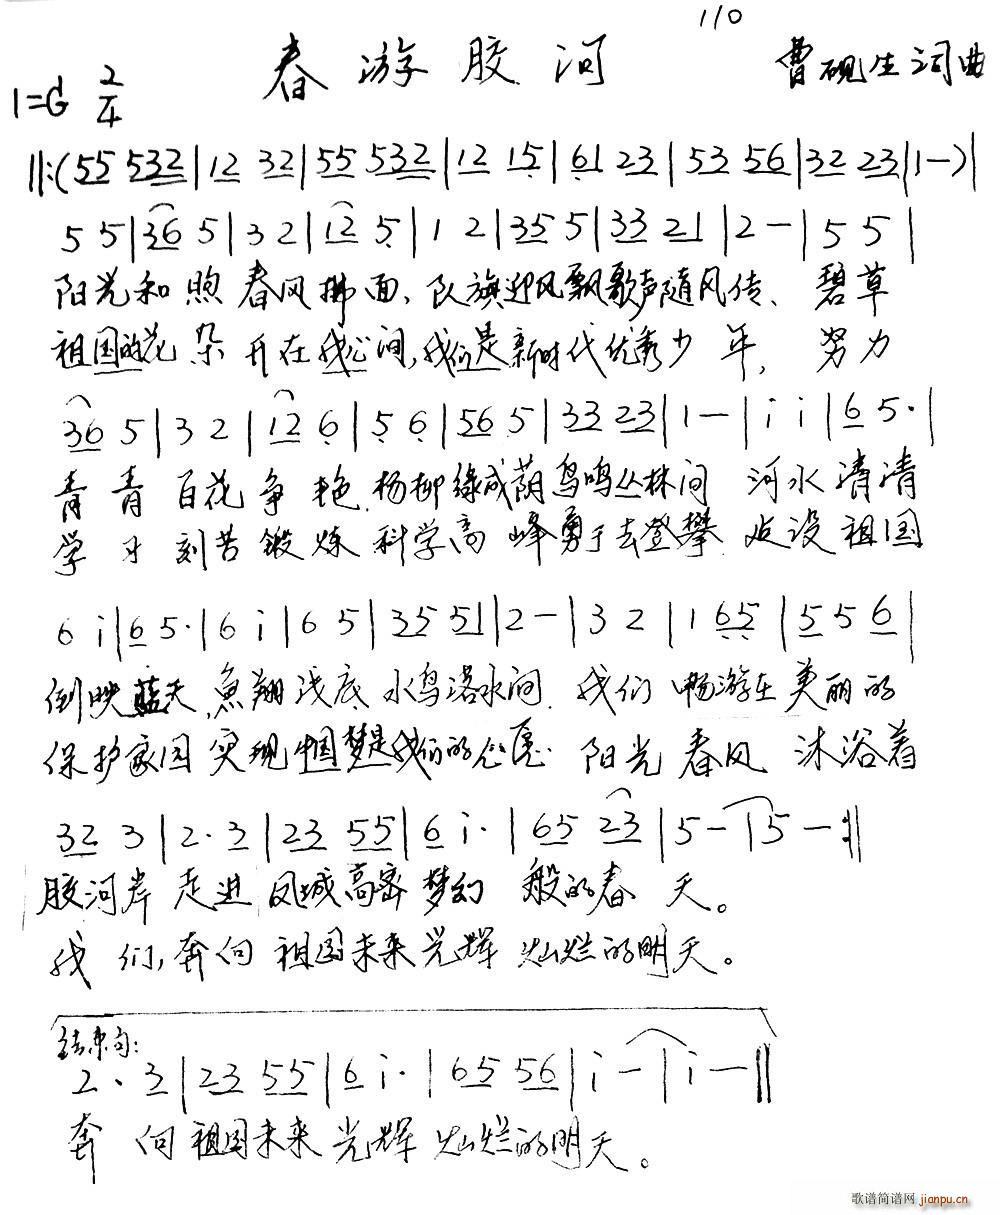 110
春游胶河
曹砚生词曲
1=G 2/4
||:(55 532|12 32|55 532|12 15|61 23|53 56|32 23|1—)|
5 5|36 5|3 2|12 5|1 2|35 5|33 21|2 —|5 5|
阳光和煦春风拂面,队旗迎风飘歌声随风传、碧草
祖国的花朵开在我心间,我们是新时代优秀少年,努力
36 5|3 2|12 6|5 6|56 5|33 23|1 —|i i|6 5·|
青青百花争艳杨柳绿成荫鸟鸣丛林间 河水清清
学习刻苦锻炼科学高峰勇于去登攀 建设祖国
6 i|6 5·|6 i|6 5|35 51|2 —|3 2|1 65|5 5 6|
倒映蓝天,鱼翔浅底水鸟落水间.我们畅游在美丽的
保护家园实现中国梦是我们的心愿 阳光春风沐浴着
32 3|2· 3|23 55|6 i·|65 23|5 —|5 —:||
胶河岸走进凤城高密梦幻般的春天。
我们,奔向祖国未来光辉灿烂的明天。
结束句:
2· 3|23 55|6 i·|65 56|i —|i —||
奔向祖国未来光辉灿烂的明天。
歌谱简谱网 jianpu.cn